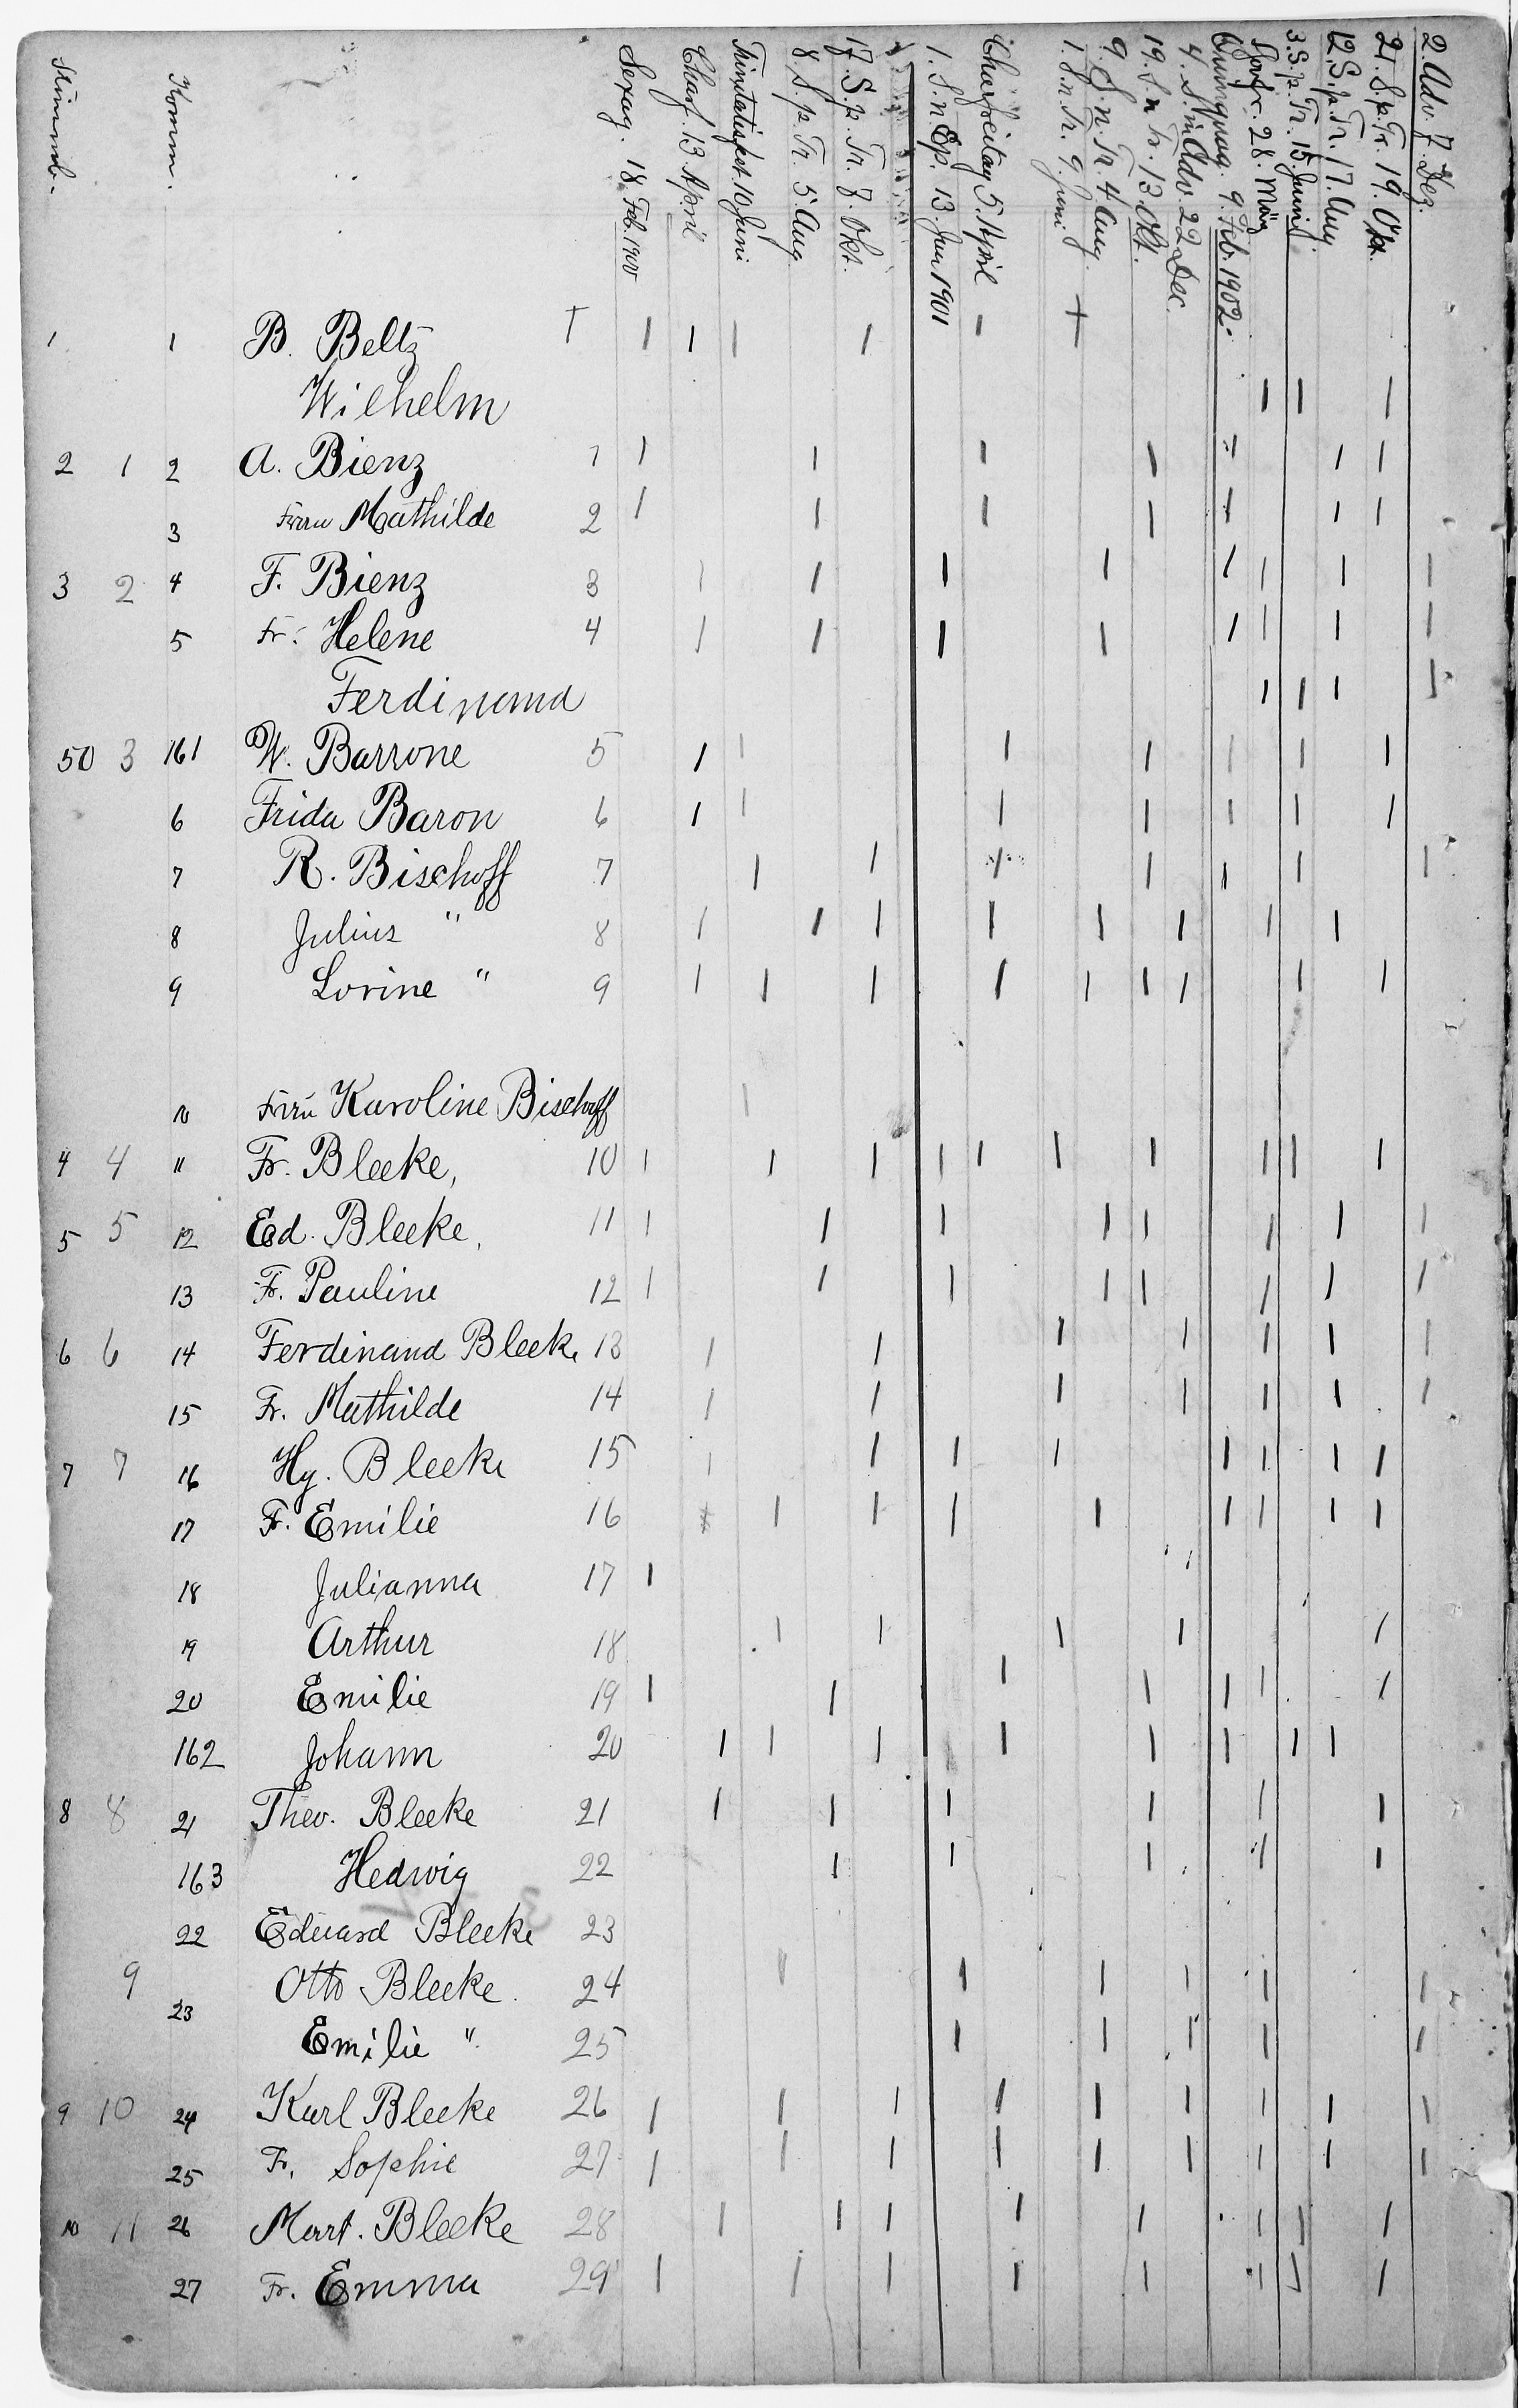 Stimmb.
Komm.
Sexag. 18 Feb. 1900
Charf. 13 April
Trinitatisfst. 10 Juni
8. S. p. Tr. 5. Aug.
17. S. p. Tr. 7. Okt.
1. S. n. Ep. 13. Jan 1901
Charfreitag 5. April
1. S. n. Tr. 9. Juni
9. S. n. Tr. 4 Aug.
19. S. n Tr. 13. Okt.
4. S. in Adv. 22 Dec.
Quinquag. 9. Feb. 1902.
28. März
3. S. p. Tr. 15. Juni
12. S. p. Tr. 17. Aug
21. S. p. Tr. 19. Okt.
2. Adv. 7. Dez.
1 1 B. Beltz † | | | | | +
Wilhelm | | |
2 1 2 A. Bienz 1 | | | | | | |
3 Frau Mathilde 2 | | | | | | |
3 2 4 F. Bienz 3 | | | | | | | |
5 Fr. Helene 4 | | | | | | | |
Ferdinand | | | |
50 3 161 W. Barrone 5 | | | | | | |
6 Frida Baron 6 | | | | | | |
7 R. Bischoff 7 | | | | | | |
8 Julius " 8 | | | | | | | |
9 Lorine " 9 | | | | | | | | |
10 Frau Karoline Bischoff |
4 4 11 Fr. Bleeke, 10 | | | | | | | | | |
5 5 12 Ed. Bleeke, 11 | | | | | | | |
13 Fr. Pauline 12 | | | | | | | |
6 6 14 Ferdinand Bleeke 13 | | | | | | |
15 Fr. Mathilde 14 | | | | | | |
7 7 16 Hy. Bleeke 15 | | | | | | | |
17 Fr. Emilie 16 | | | | | | | |
18 Julianna 17 |
19 Arthur 18 | | | | |
20 Emilie 19 | | | | | | |
162 Johann 20 | | | | | | | |
8 8 21 Theo. Bleeke 21 | | | | | |
163 Hedwig 22 | | | | |
22 Eduard Bleeke 23
9 23 Otto Bleeke. 24 | | | | | |
Emilie " 25 | | | | |
9 10 24 Karl Bleeke 26 | | | | | | | | |
25 Fr. Sophie 27 | | | | | | | | |
10 11 26 Mart. Bleeke 28 | | | | | | | |
27 Fr. Emma 29 | | | | | | | |